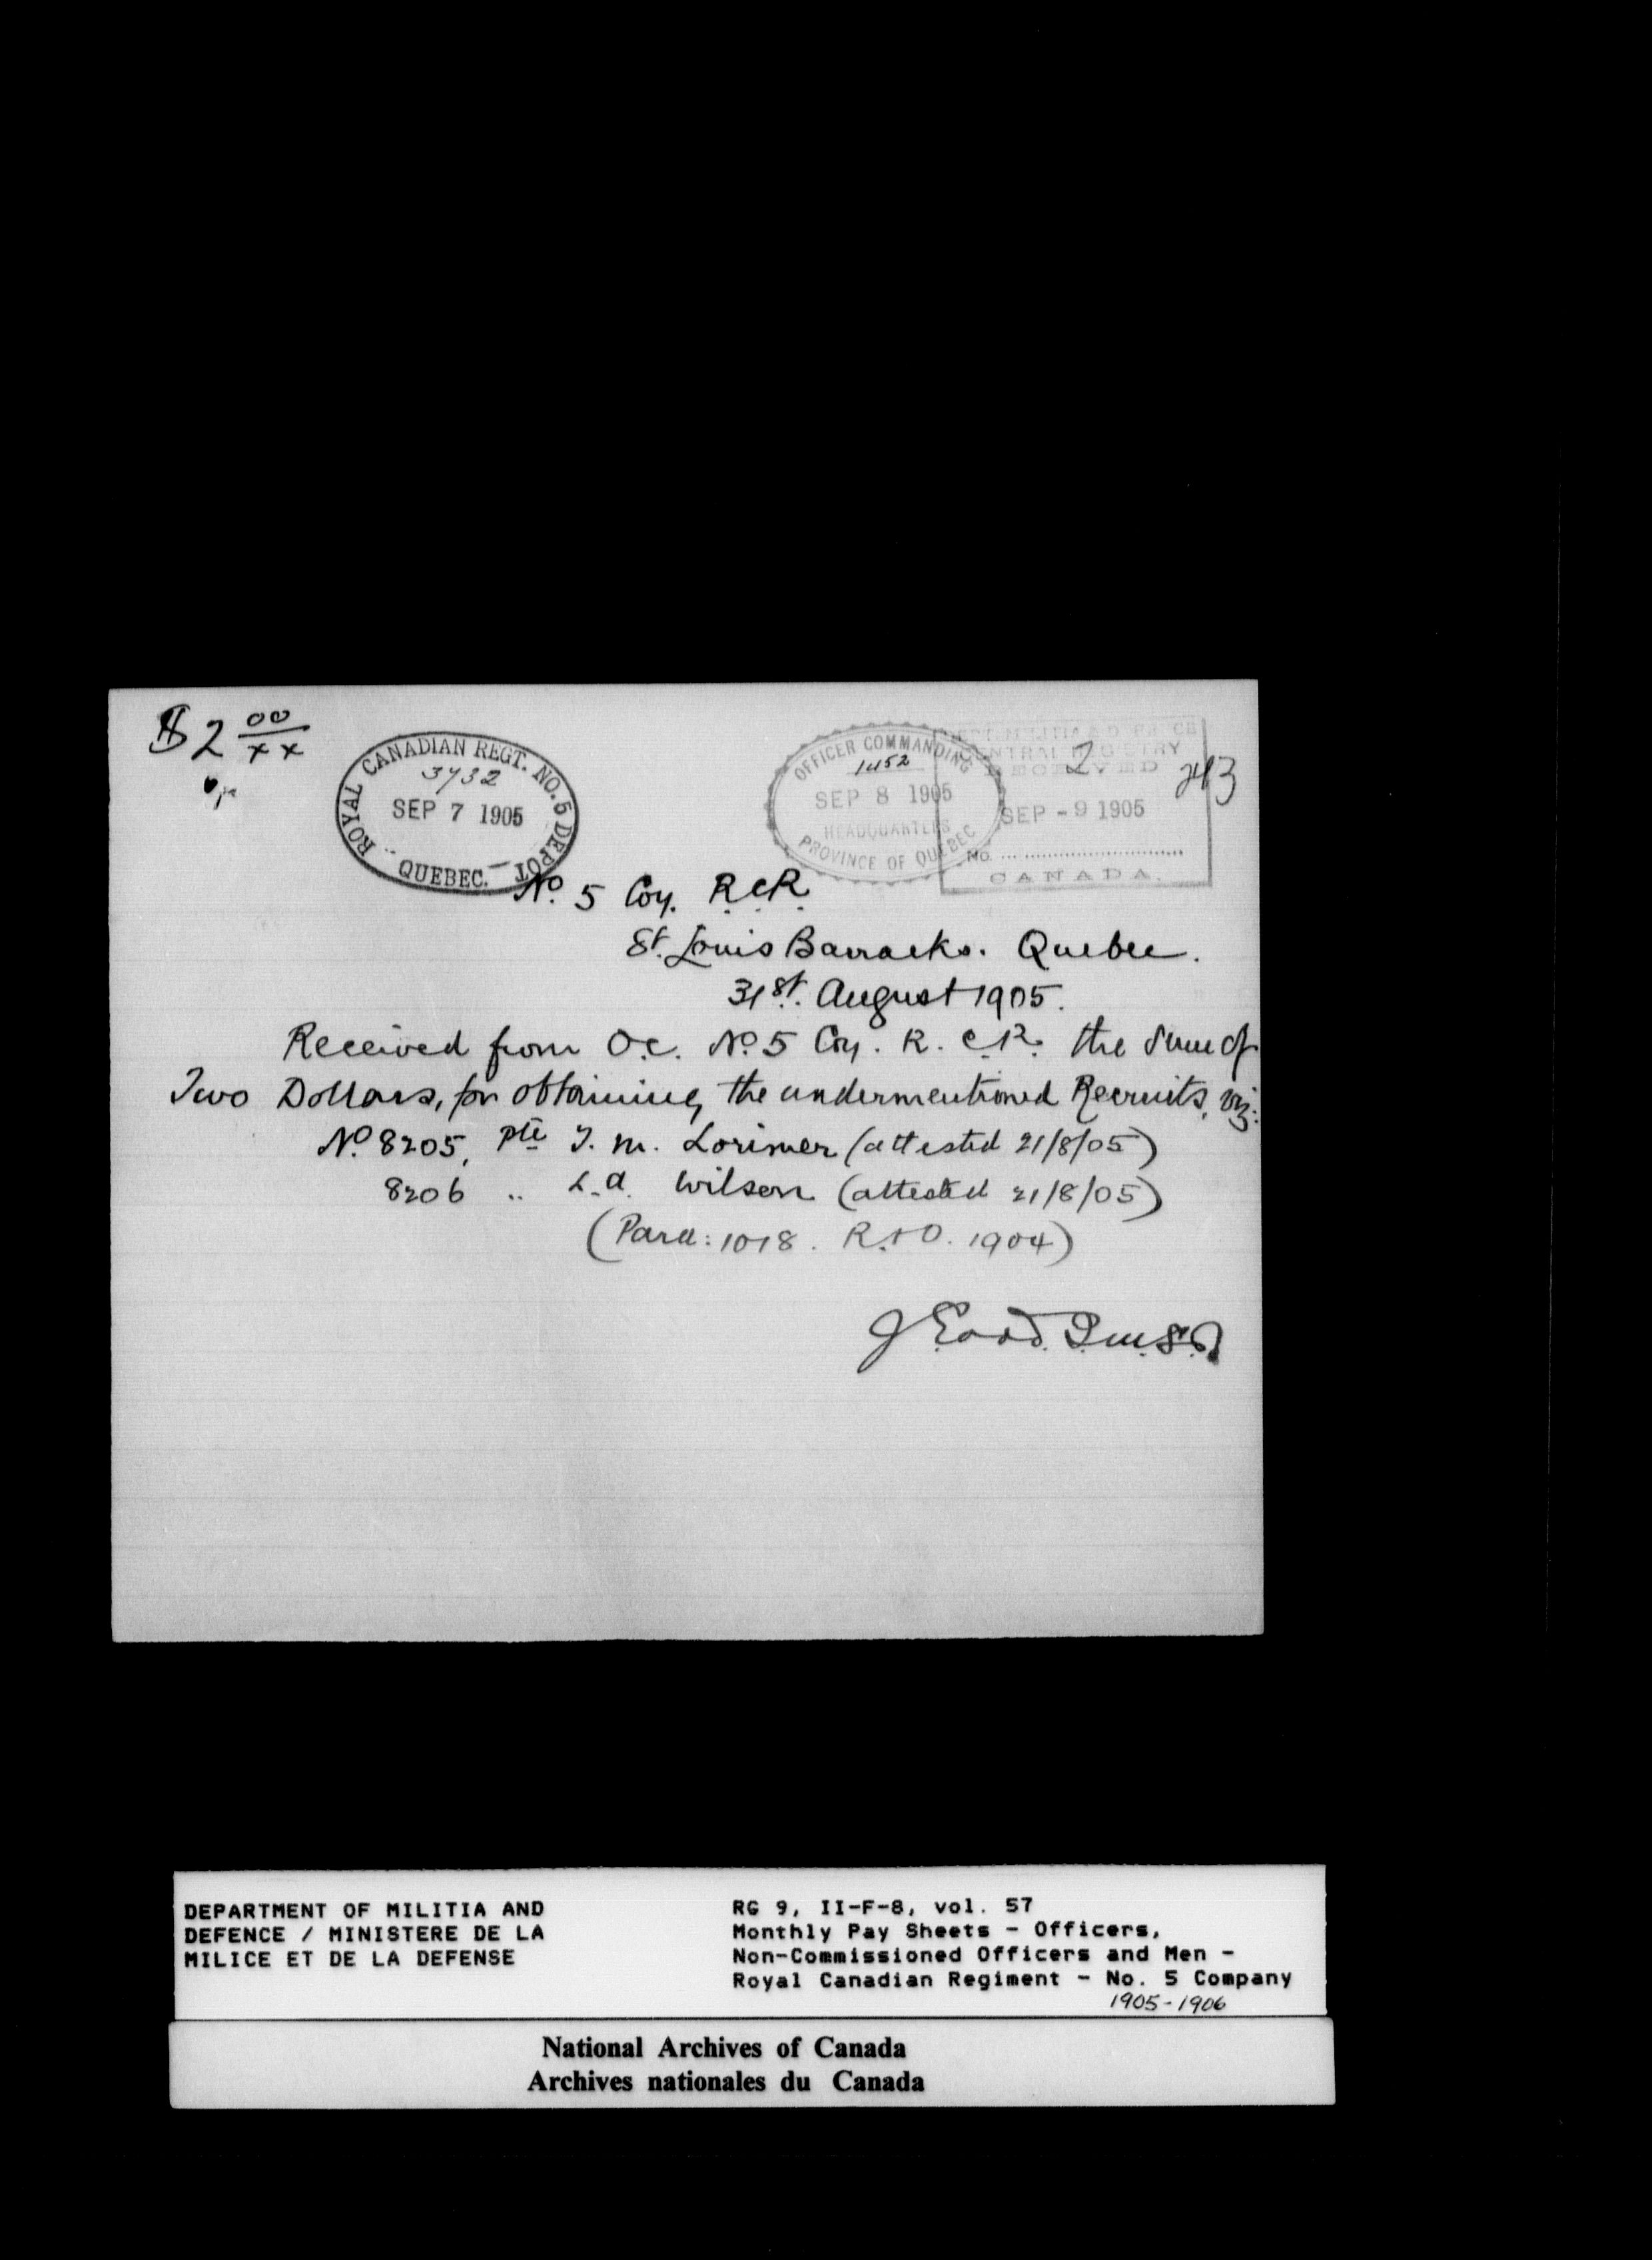 $2 00/xx
ROYAL CANADIAN REGT. NO. 5 DEPOT
3732
SEP 7 1905
QUEBEC.
OFFICER COMMANDING
1452
SEP 8 1905
HEADQUARTERS
PROVINCE OF QUEBEC
CENTRAL REGISTRY
RECEIVED
2
243
SEP - 9 1905
No.
CANADA.
No. 5 Coy. R.C.R.
St. Louis Barracks. Quebec.
31st. August 1905.
Received from O.C. No. 5 Coy. R.C.R. the sum of
Two Dollars, for obtaining the undermentioned Recruits, viz:
No. 8205, Pte J. M. Lorimer (attested 21/8/05)
8206 " L.A. Wilson (attested 21/8/05)
(Para: 1018. R.&O. 1904)
DEPARTMENT OF MILITIA AND
DEFENCE / MINISTERE DE LA
MILICE ET DE LA DEFENSE
RG 9, II-F-8, vol. 57
Monthly Pay Sheets - Officers,
Non-Commissioned Officers and Men -
Royal Canadian Regiment - No. 5 Company
1905-1906
National Archives of Canada
Archives nationales du Canada